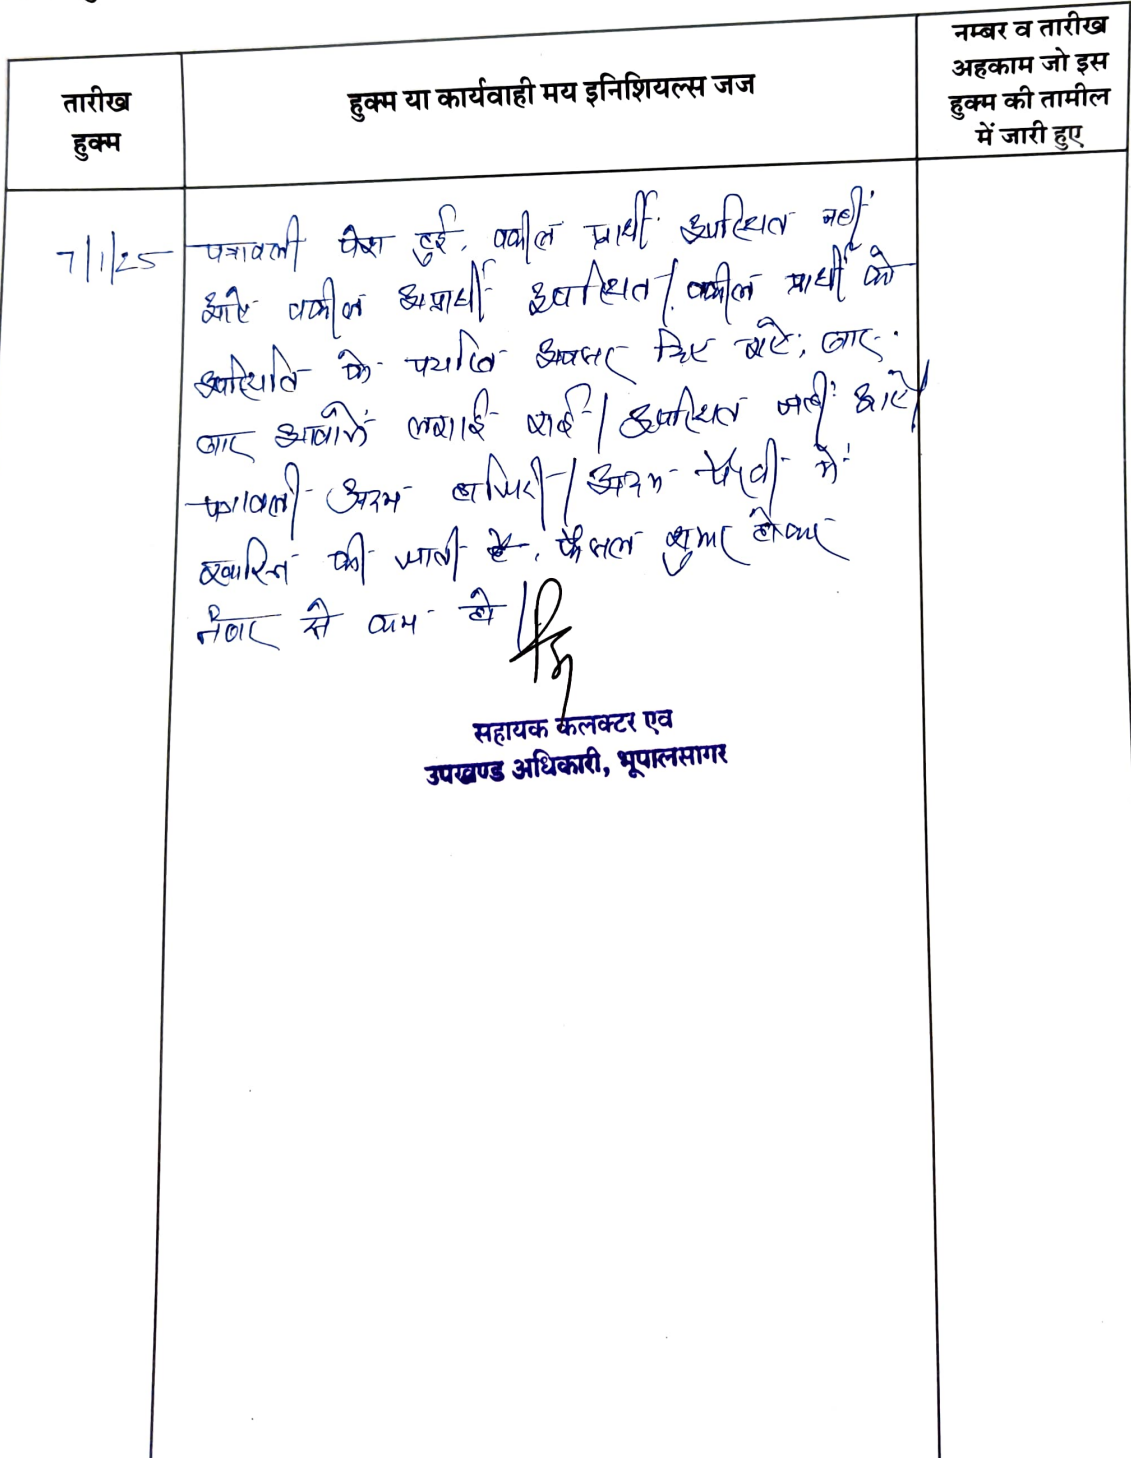 तारीख
हुक्म
हुक्म या कार्यवाही मय इनिशियल्स जज
नम्बर व तारीख
अहकाम जो इस
हुक्म की तामील
में जारी हुए
7/1/25
पत्रावली पेश हुई, वकील प्रार्थी उपस्थित नहीं
आए वकील अप्रार्थी उपस्थित। वकील प्रार्थी को
उपस्थिति के पर्याप्त अवसर दिए गए, बार-
बार आवाजें लगाई गई। उपस्थित नहीं आऐ।
पत्रावली अदम हाजिरी/अदम पैरवी में
खारिज की जाती है, फैसल शुमार होकर
नंबर से कम हो।
सहायक कलक्टर एवं
उपखण्ड अधिकारी, भूपालसागर